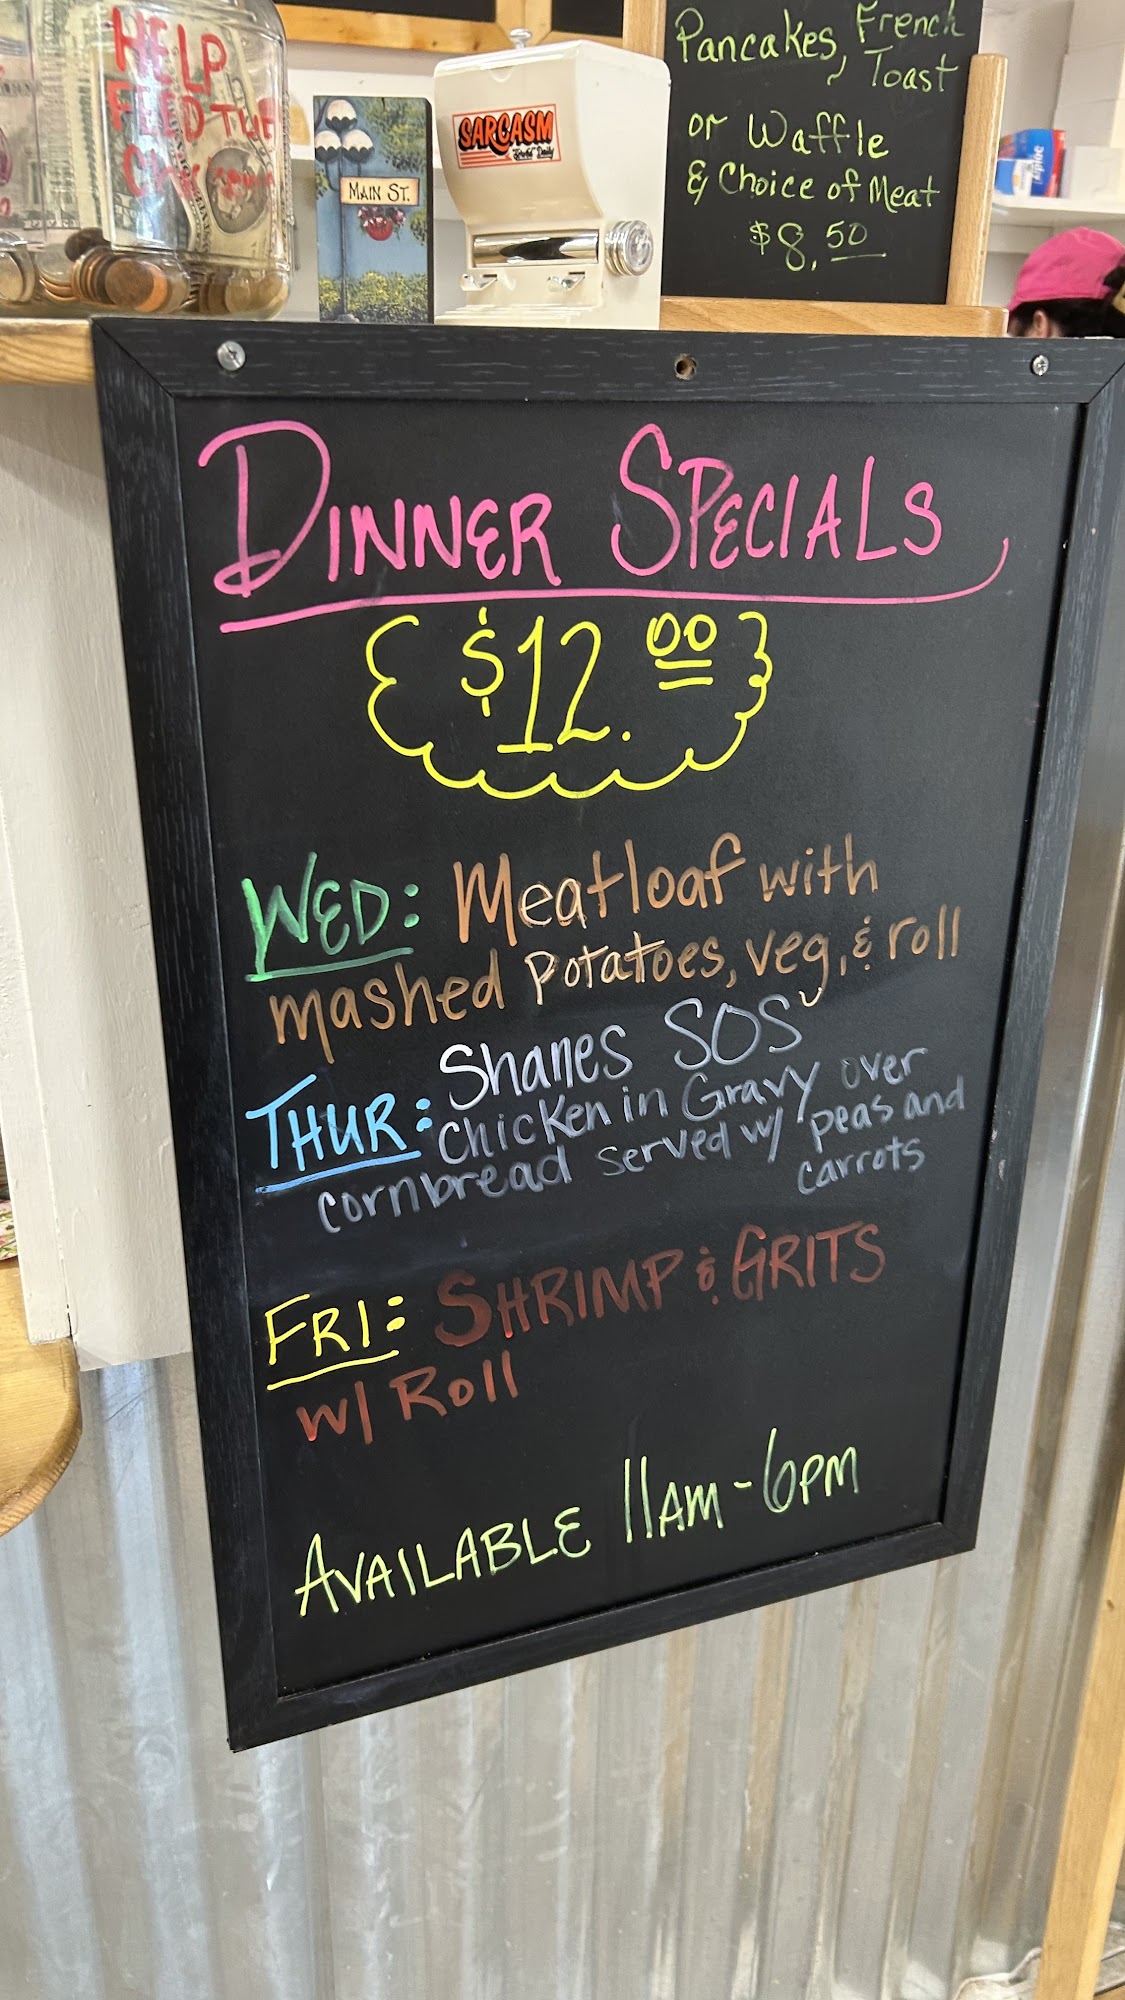 HELP
FEED THE
MAIN ST.
SARCASM
Served Daily
Pancakes, French
Toast
or Waffle
& Choice of Meat
$8.50
Ziploc
DINNER SPECIALS
$12.00
WED: Meatloaf with
mashed Potatoes, veg, & roll
THUR: Shanes SOS
Chicken in Gravy over
cornbread served w/ peas and
carrots
FRI: SHRIMP & GRITS
w/ Roll
AVAILABLE 11AM-6PM